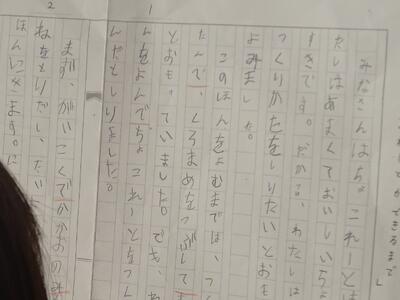 れしができるまで
みなさんはちょこれーとを
たしはあまくておいしいちょ
すきです。だから、わたしは
つくりかたをしりたいとおも
よみました。
このほんをよむまでは、
たんで、くろまめをつぶして
とおもっていました。でも、
んをよんでちょこれーとをつ
んだとしりました。
まず、がいこくでかかおのみ
ねをとりだし、
ほんにきます。
1
2